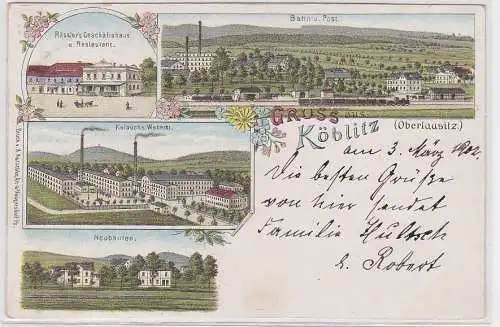 Rössler's Geschäftshaus
u. Restaurant.
Bahn u. Post.
GRUSS aus
Köblitz
(Oberlausitz.)
Kalauch's Weberei.
Neubauten.
am 3. März 1902.
Die besten Grüße
von hier sendet
Familie
u. Robert